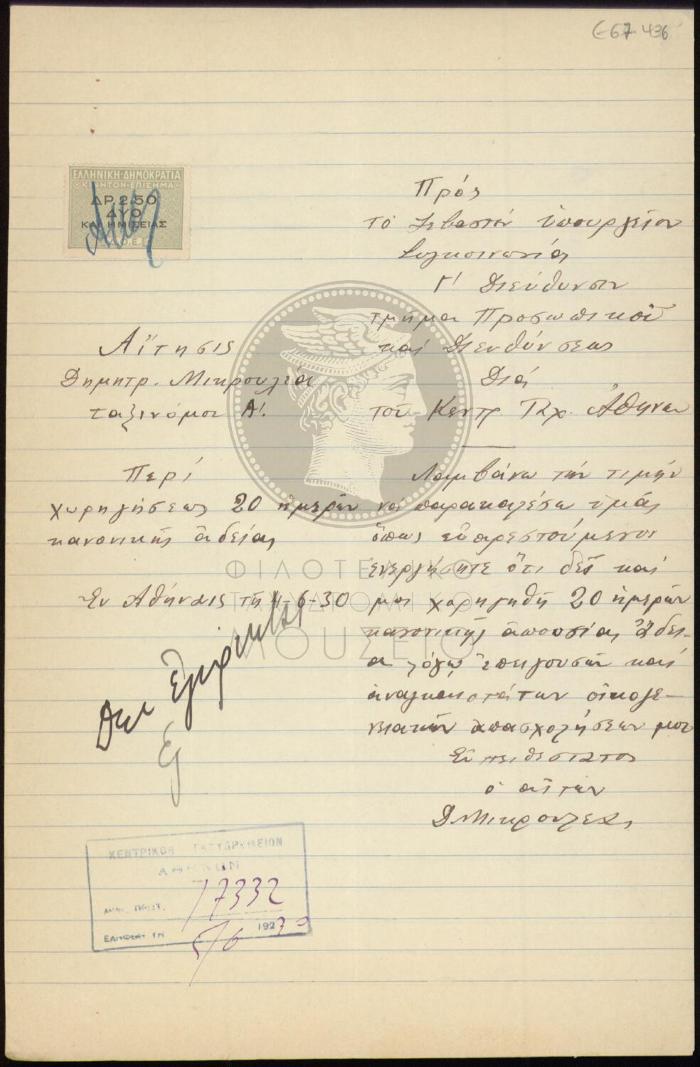 667-436
ΕΛΛΗΝΙΚΗ ΔΗΜΟΚΡΑΤΙΑ
ΚΙΝΗΤΟΝ ΕΠΙΣΗΜΑ
ΔΡ. 2.50
ΔΥΟ
ΚΑΙ ΗΜΙΣΕΙΑΣ
Πρὸς
τὸ Σεβαστὸν Ὑπουργεῖον
Συγκοινωνίας
Γ' Διεύθυνσιν
τμῆμα Προσωπικοῦ
καὶ Διευθύνσεως
Διὰ
τοῦ Κεντρ. Ταχ. Ἀθηνῶν
Αἴτησις
Δημητρ. Μικρουλέα
ταξινόμου Α'.
Περὶ
χορηγήσεως 20 ἡμερῶν
κανονικῆς ἀδείας
Ἐν Ἀθήναις τῇ 4-6-30
Λαμβάνω τὴν τιμὴν
νὰ παρακαλέσω ὑμᾶς
ὅπως εὐαρεστούμενοι
ἐνεργήσητε ὅτι δεῖ καὶ
μοι χορηγηθῇ 20 ἡμερῶν
κανονικῆς ἀπουσίας ἄδει-
α λόγῳ ἐπειγουσῶν καὶ
ἀναγκαιοτάτων οἰκογε-
νειακῶν ἀπασχολήσεών μου
Εὐπειθέστατος
ὁ αἰτῶν
Δ. Μικρουλέας
ΦΙΛΟΤΕΛΙΚΟ
ΤΑΧΥΔΡΟΜΙΚΟ
ΜΟΥΣΕΙΟ
ΚΕΝΤΡΙΚΟΝ ΤΑΧΥΔΡΟΜΕΙΟΝ
ΑΘΗΝΩΝ
ΑΡΙΘ. ΠΡΩΤ. 17332
ΕΛΗΦΘΗ ΤΗ 5/6 1930